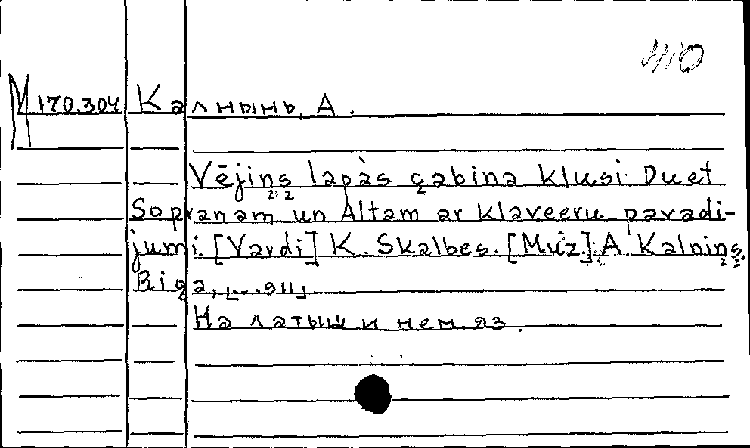 М 170.304 Калнынь, А.
Vējiņš lapās çabina klusi. Duet
Sopranam un Altam ar klaveeru pavadi-
jumi. [Vardi] K. Skalbes. [Muz.] A Kalniņš.
Riga,
На латыш и нем. яз.